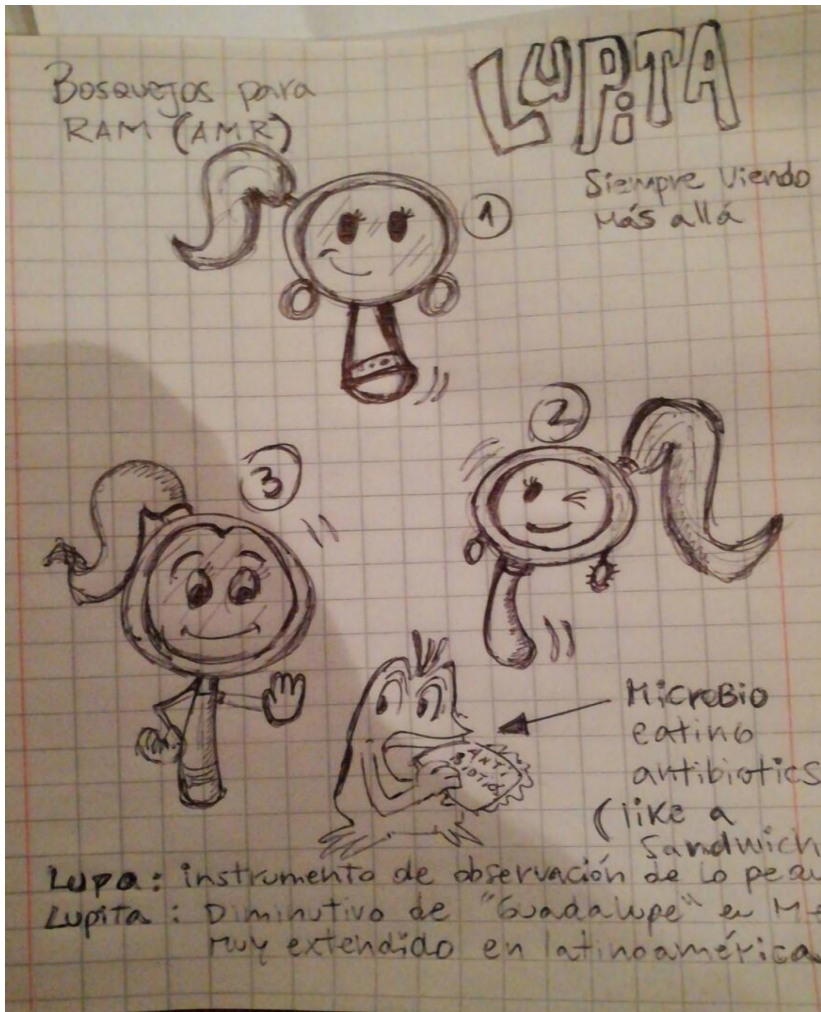 Bosquejos para
RAM (AMR)
LUPITA
Siempre Viendo
Más allá
1
2
3
MicroBio
eating
antibiotics
(like a
Sandwich
ANTI
BIOTIC
Lupa: instrumento de observación de lo
Lupita: Diminutivo de "Guadalupe" en
Muy extendido en latinoamérica